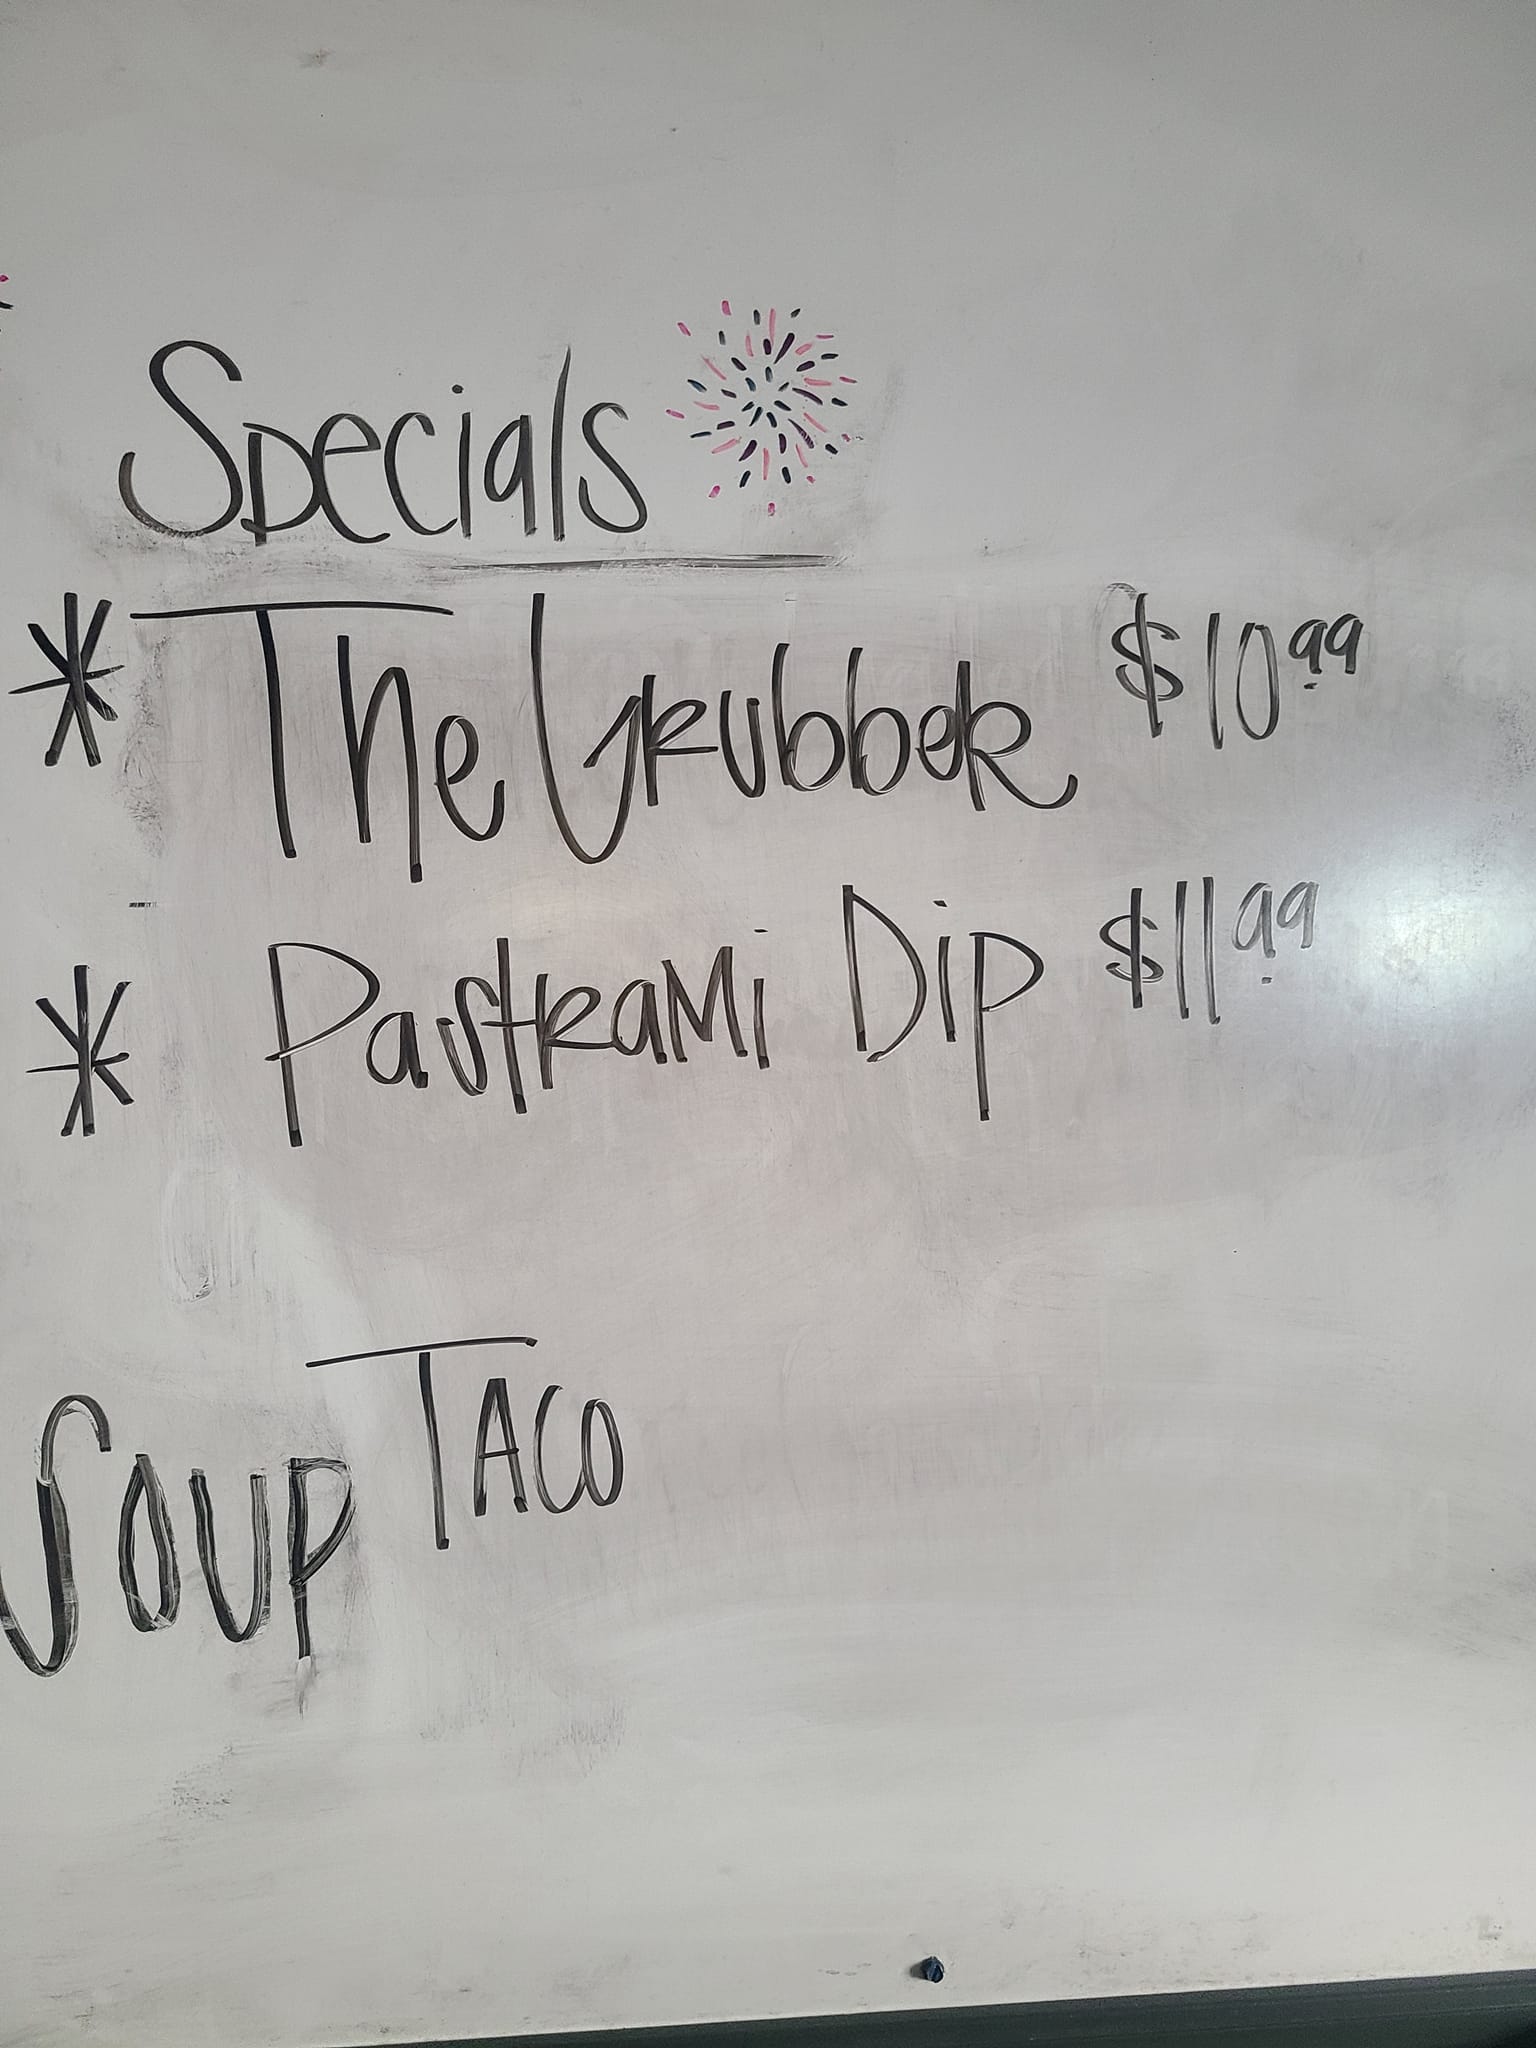 Specials
* The Grubber $10.99
* Pastrami Dip $11.99
Soup Taco